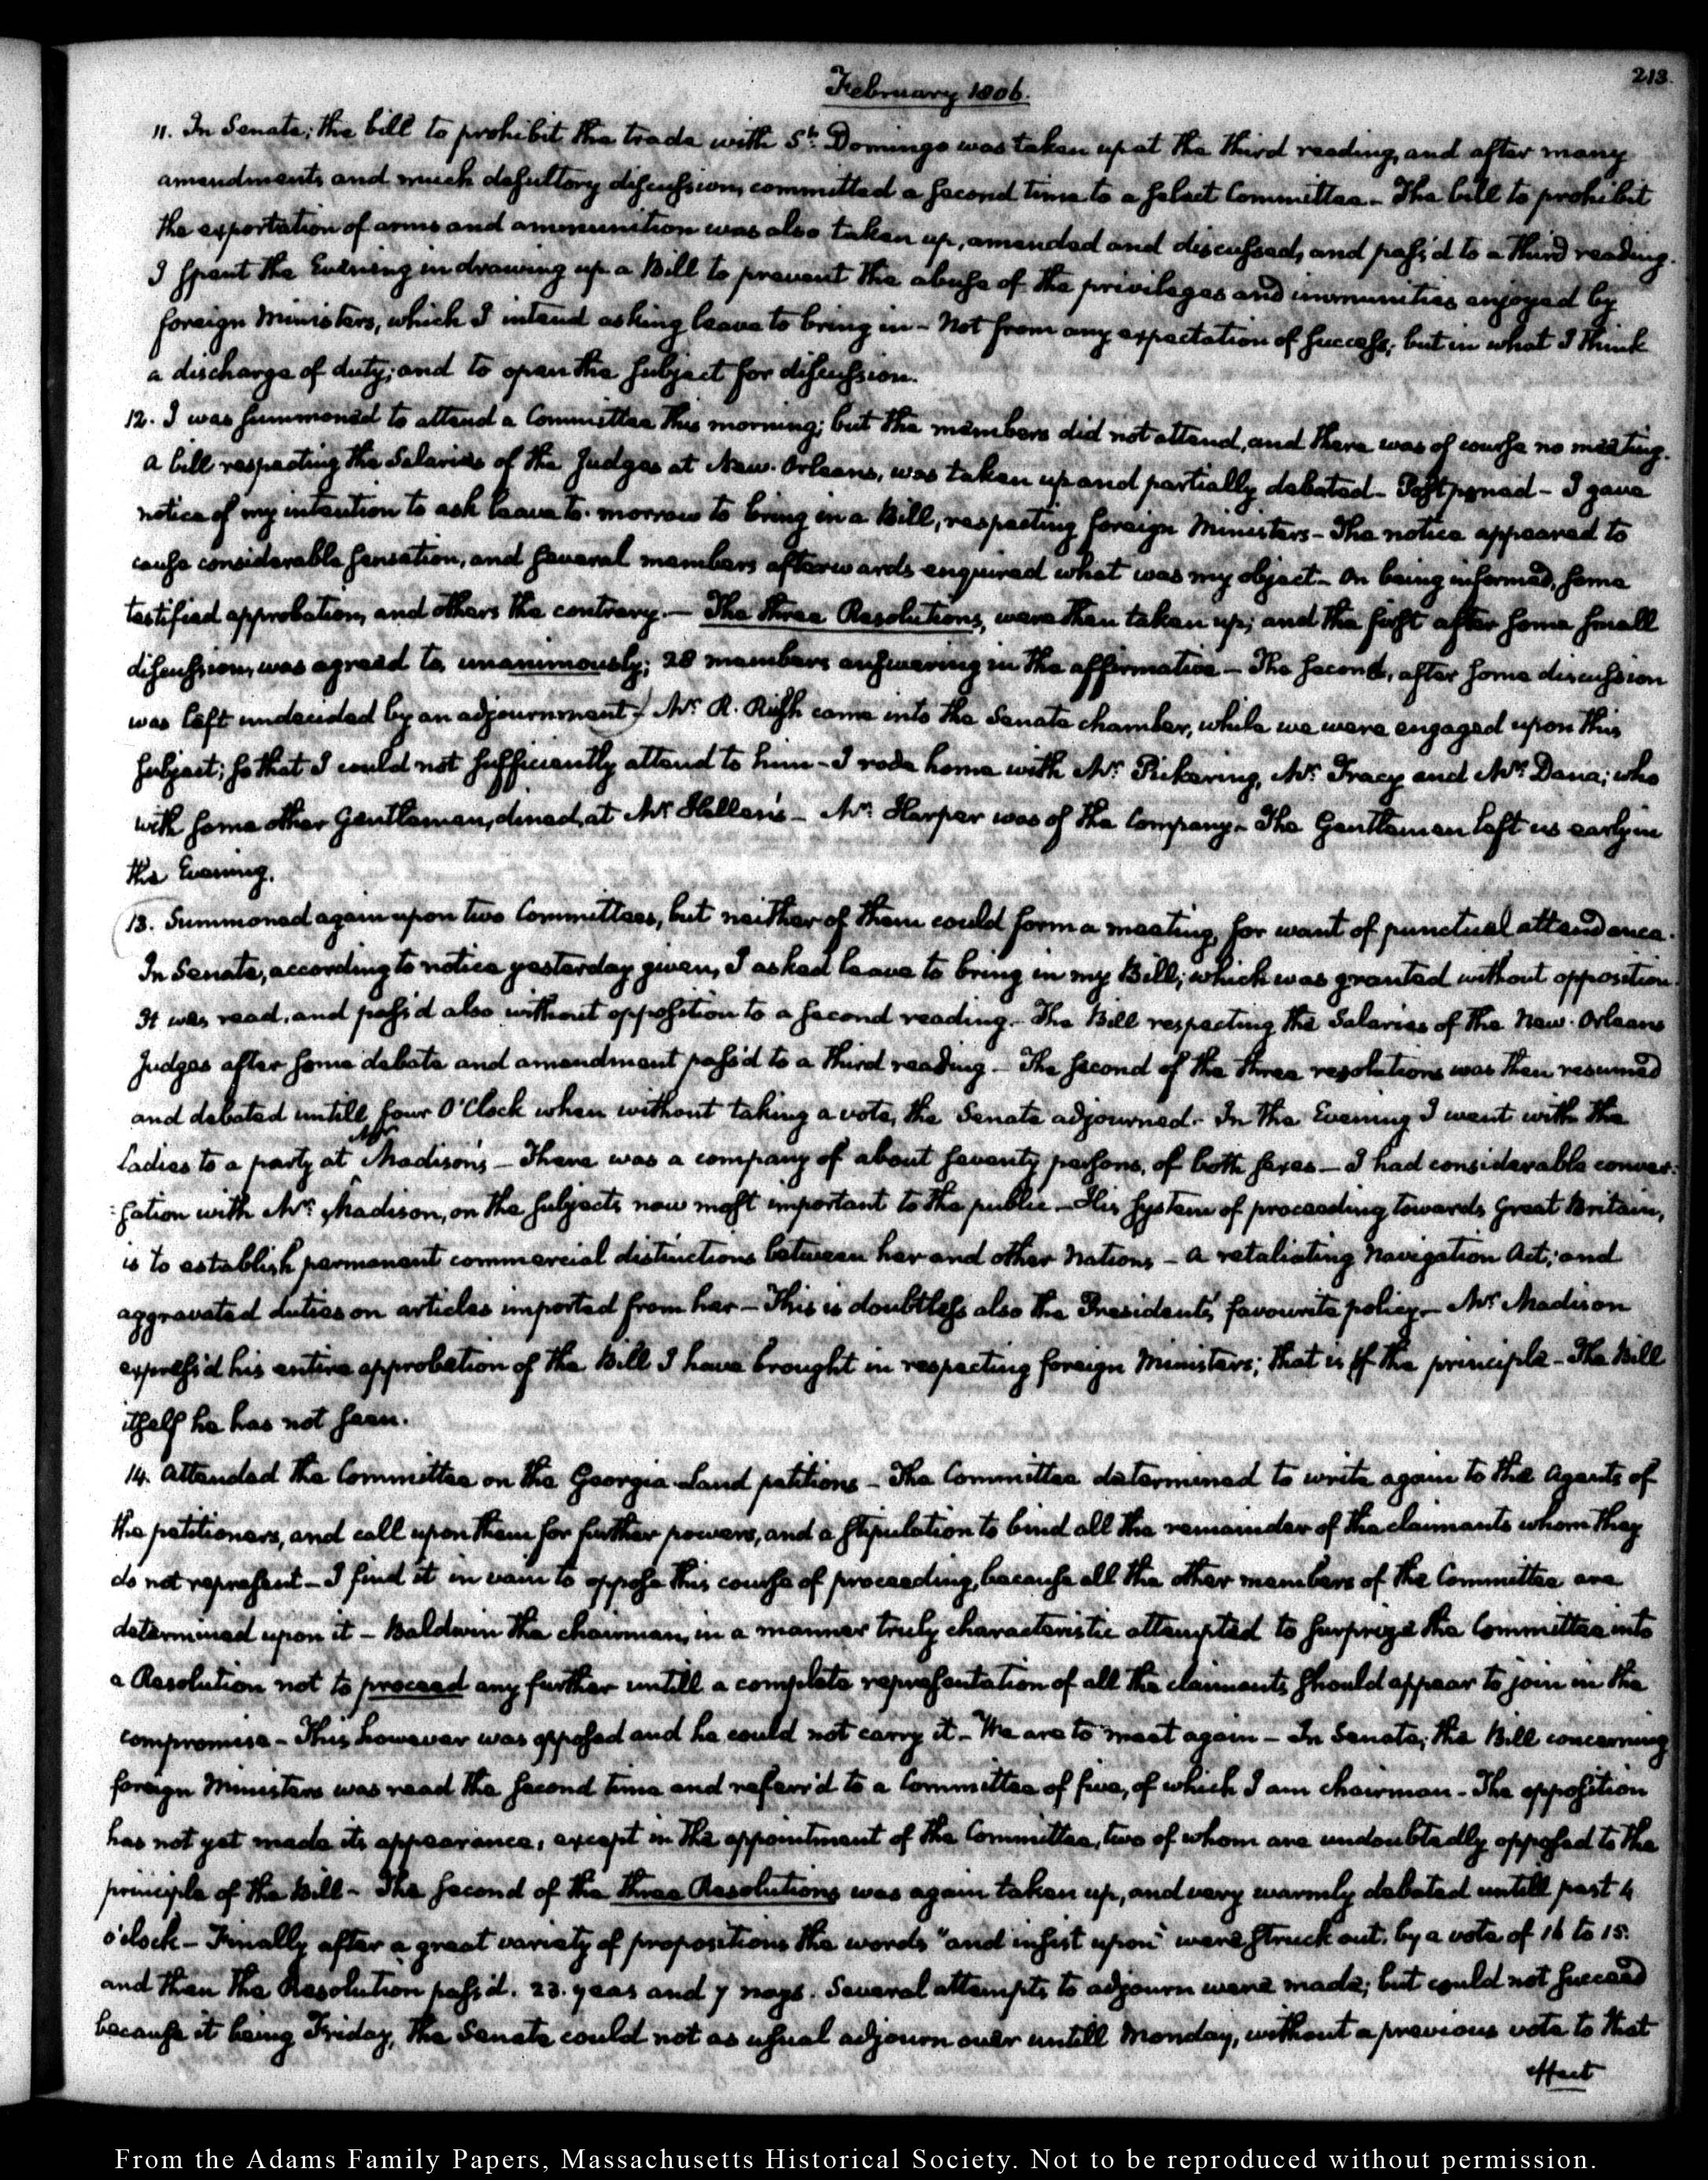 213.
February 1806.
11. In Senate; the bill to prohibit the trade with St. Domingo was taken up at the third reading, and after many
amendments and much desultory discussion, committed a second time to a select Committee. The bill to prohibit
the exportation of arms and ammunition was also taken up, amended and discussed, and pass'd to a third reading.
I spent the Evening in drawing up a Bill to prevent the abuse of the privileges and immunities enjoyed by
foreign Ministers, which I intend asking leave to bring in - Not from any expectation of success; but in what I think
a discharge of duty; and to open the subject for discussion.
12. I was summoned to attend a Committee this morning; but the members did not attend, and there was of course no meeting.
A bill respecting the Salaries of the Judges at New-Orleans, was taken up and partially debated - Postponed - I gave
notice of my intention to ask leave to-morrow to bring in a Bill, respecting foreign Ministers - The notice appeared to
cause considerable sensation, and several members afterwards enquired what was my object - On being informed, some
testified approbation, and others the contrary. - The three Resolutions, were then taken up; and the first after some small
discussion, was agreed to, unanimously; 28 members answering in the affirmative - The second, after some discussion
was left undecided by an adjournment - Mr. R. Rush came into the Senate chamber, while we were engaged upon this
subject; so that I could not sufficiently attend to him - I rode home with Mr. Pickering, Mr. Tracy and Mr. Dana; who
with some other Gentlemen, dined, at Mr. Hellen's - Mr. Harper was of the Company - The Gentlemen left us early in
the Evening.
13. Summoned again upon two Committees, but neither of them could form a meeting, for want of punctual attendance.
In Senate, according to notice yesterday given, I asked leave to bring in my Bill; which was granted without opposition.
It was read, and pass'd also without opposition to a second reading. - The Bill respecting the Salaries of the New-Orleans
Judges after some debate and amendment pass'd to a third reading - The second of the three resolutions was then resumed
and debated untill four O'Clock when without taking a vote, the Senate adjourned. - In the Evening I went with the
Ladies to a party at Mr Madison's - There was a company of about seventy persons, of both sexes - I had considerable conver-
-sation with Mr. Madison, on the subjects now most important to the public - His system of proceeding towards Great Britain,
is to establish permanent commercial distinctions between her and other Nations - a retaliating Navigation Act; and
aggravated duties on articles imported from her - This is doubtless also the President's favourite policy - Mr. Madison
express'd his entire approbation of the Bill I have brought in respecting foreign Ministers; that is of the principle - The Bill
itself he has not seen.
14. Attended the Committee on the Georgia Land petitions - The Committee determined to write again to the Agents of
the petitioners, and call upon them for further powers, and a stipulation to bind all the remainder of the claimants whom they
do not represent - I find it in vain to oppose this course of proceeding, because all the other members of the Committee are
determined upon it - Baldwin the chairman, in a manner truly characteristic attempted to surprize the Committee into
a Resolution not to proceed any further untill a complete representation of all the claimants should appear to join in the
compromise - This however was opposed and he could not carry it - We are to meet again - In Senate, the Bill concerning
foreign Ministers was read the second time and referr'd to a Committee of five, of which I am chairman - The opposition
has not yet made its appearance, except in the appointment of the Committee, two of whom are undoubtedly opposed to the
principle of the Bill - The second of the three Resolutions was again taken up, and very warmly debated untill past 4
o'clock - Finally after a great variety of propositions the words "and insist upon" were struck out, by a vote of 16 to 15.
and then the Resolution pass'd. 23. yeas and 7 nays. Several attempts to adjourn were made; but could not succeed
because it being Friday, the Senate could not as usual adjourn over untill Monday, without a previous vote to that
effect
From the Adams Family Papers, Massachusetts Historical Society. Not to be reproduced without permission.